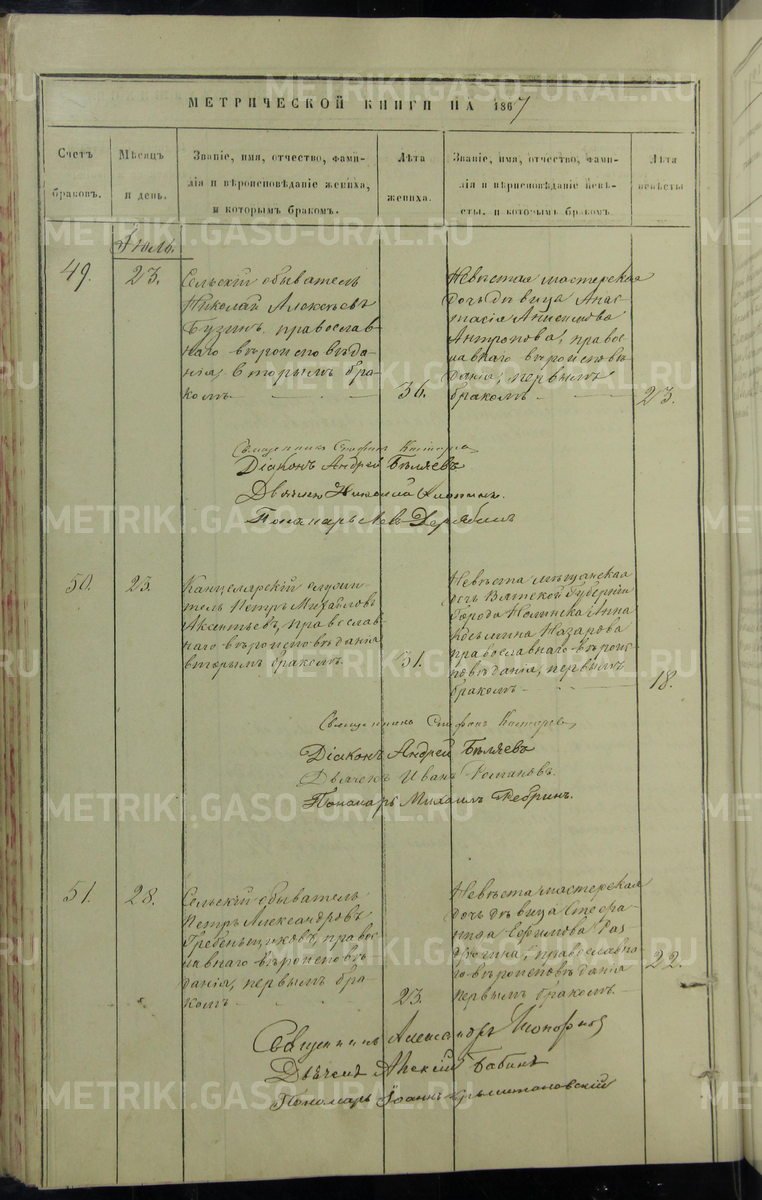 МЕТРИЧЕСКОЙ КНИГИ НА 1867
Счетъ
браковъ.
Мѣсяцъ
и день.
Званіе, имя, отчество, фами-
лія и вѣроисповѣданіе жениха,
и которымъ бракомъ.
Лѣта
жениха.
Званіе, имя, отчество, фами-
лія и вѣрисповѣданіе невѣ-
сты. и которымъ бракомъ
Лѣта
невѣсты
Іюль.
49.
23.
Сельскій обыватель
Николай Алексѣевъ
Бузинъ, православ
наго вѣроисповѣда-
нія, вторымъ бра-
комъ
36.
Невѣста мастерская
дочь дѣвица Анас-
тасія
Антропова, право
славнаго вѣроисповѣ
данія, первымъ
бракомъ
23.
Священникъ Стефанъ
Діаконъ Андрей Бѣляевъ
Николай
Пономарь Левъ Дерябинъ
50.
23.
Канцелярскій служи-
тель Петръ Михайловъ
Аксентьевъ, православ
наго вѣроисповѣданія
вторымъ бракомъ
31.
Невѣста мѣщанская
дочь Вятской Губерніи
Города Нолинска Анна
Козьмина Назарова
православнаго вѣроис
повѣданія, первымъ
бракомъ
18.
Священникъ Стефанъ
Діаконъ Андрей Бѣляевъ
Дьячекъ Иванъ Романовъ.
Пономарь Михаилъ Ребринъ.
51.
28.
Сельскій обыватель
Петръ Александровъ
Гребеньщиковъ, право
славнаго вѣроисповѣ
данія, первымъ бра
комъ
23.
Невѣста мастерская
дочь дѣвица Стефа-
нида Ефимова
православна
го вѣроисповѣданія
первымъ бракомъ
22.
Священникъ Александръ
Дьячекъ Бабинъ
Пономарь Іоаннъ
METRIKI.GASO-URAL.RU